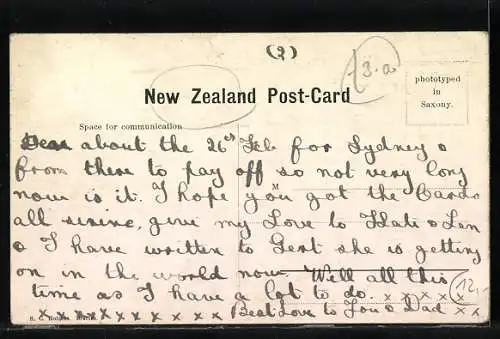 (3)
13.a
New Zealand Post-Card
phototyped
in
Saxony.
Space for communication
Dear about the 26th Feb for Sydney &
from there to pay off so not very long
now is it. I hope you got the Cards
M
all serene, give my Love to &
& I have written to Gert she is getting
on in the world now. Well all this
time as I have a lot to do. x x x x x x
12,
x x x x x x x x x x x x Best Love to You & Dad x x